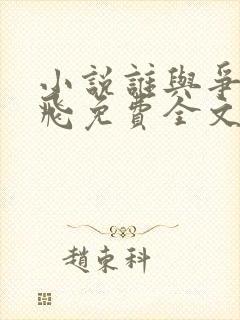 小說誰與爭
飛免費全文
趙東科